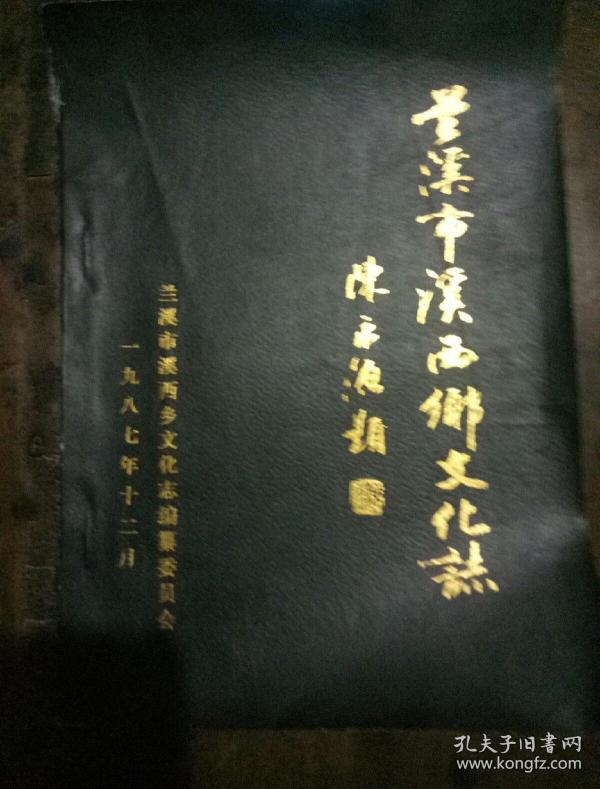 兰溪市溪西鄉文化誌
陳永源題
兰溪市溪西乡文化志编纂委员会
一九八七年十二月
孔夫子旧书网
www.kongfz.com